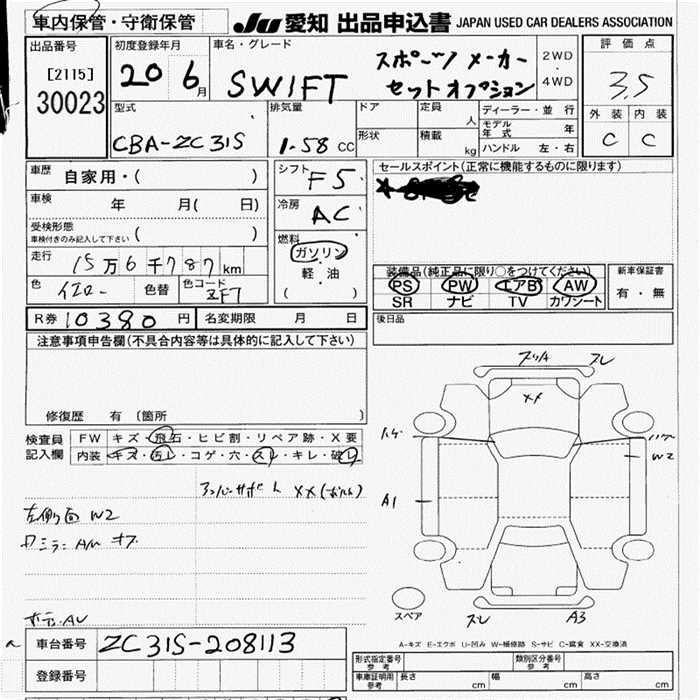 車内保管・守衛保管
JU 愛知 出品申込書 JAPAN USED CAR DEALERS ASSOCIATION
出品番号
[2115]
30023
初度登録年月
20 6月
車名・グレード
SWIFT
スポーツ メーカー
セットオプション
2WD
・
4WD
評価点
3.5
外装 内装
C C
型式
CBA-ZC31S
排気量
1.58 CC
ドア
形状
定員
人
積載
kg
ディーラー・並行
モデル年式 年
ハンドル 左・右
車歴 自家用・( )
車検 年 月( 日)
受検形態
車検付きのみ記入して下さい ( )
走行 15万6千787km
色 イエロー 色替 色コード ZF7
シフト F5
冷房 AC
燃料
ガソリン
軽・油
( )
セールスポイント(正常に機能するものに限ります)
装備品(純正品に限り○をつけてください)
PS PW エアB AW
SR ナビ TV カワシート
新車保証書
有・無
R券 10380 円 名変期限 月 日
後日品
注意事項申告欄(不具合内容等は具体的に記入して下さい)
修復歴 有 〔箇所 〕
検査員
記入欄
FW キズ・飛石・ヒビ割・リペア跡・X要
内装 キズ・汚レ・コゲ・穴・スレ・キレ・破レ
XX(ボルト)
左側面 W2
スレ
XX
ハゲ
ハゲ
W2
A1
スペア
スレ
A3
車台番号 ZC31S-208113
登録番号
A-キズ E-エクボ U-凹み W-補修跡 S-サビ C-腐食 XX-交換済
形式指定番号
参考
類別区分番号
参考
車庫証明用
参考
長さ cm 幅 cm 高さ cm